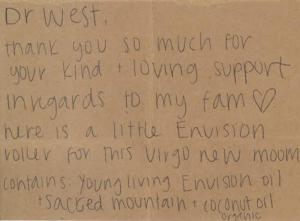 Dr West,
thank you so much for
your kind + loving support
inregards to my fam ♡
here is a little Envision
roller for this virgo new moon
contains: young living Envision oil
+ sacred mountain + coconut oil
organic